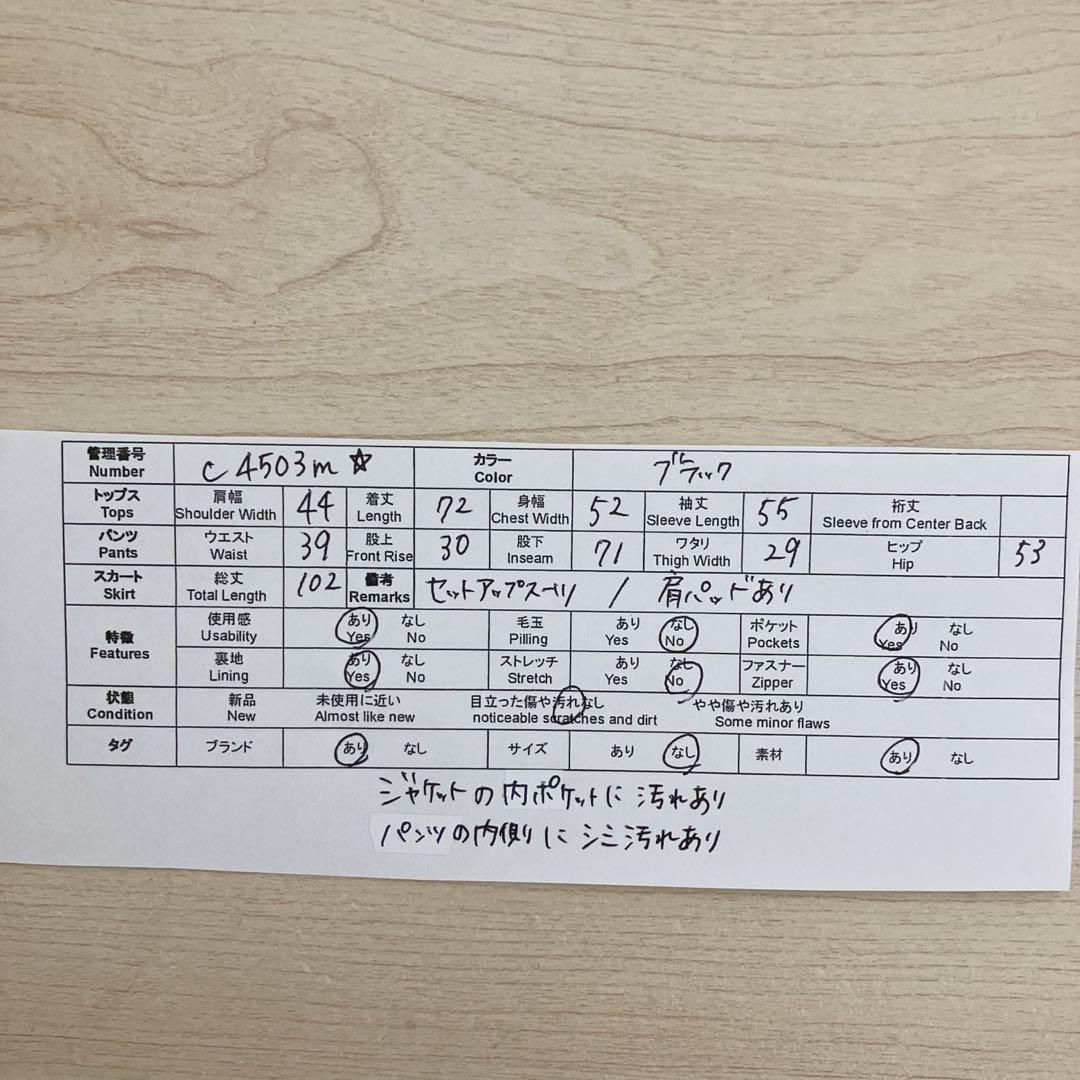 管理番号 Number c4503m☆ カラー Color ブラック
トップス Tops 肩幅 Shoulder Width 44 着丈 Length 72 身幅 Chest Width 52 袖丈 Sleeve Length 55 裄丈 Sleeve from Center Back
パンツ Pants ウエスト Waist 39 股上 Front Rise 30 股下 Inseam 71 ワタリ Thigh Width 29 ヒップ Hip 53
スカート Skirt 総丈 Total Length 102 備考 Remarks セットアップスーツ / 肩パッドあり
特徴 Features 使用感 Usability あり Yes なし No 毛玉 Pilling あり Yes なし No ポケット Pockets あり Yes なし No
裏地 Lining あり Yes なし No ストレッチ Stretch あり Yes なし No ファスナー Zipper あり Yes なし No
状態 Condition 新品 New 未使用に近い Almost like new 目立った傷や汚れなし noticeable scratches and dirt やや傷や汚れあり Some minor flaws
タグ ブランド あり なし サイズ あり なし 素材 あり なし
ジャケットの内ポケットに汚れあり
パンツの内側にシミ汚れあり